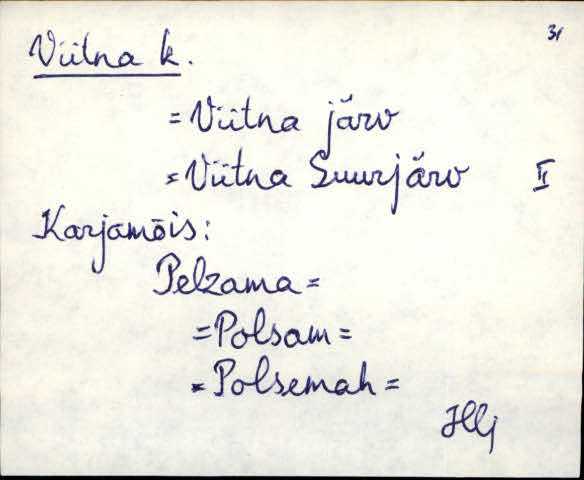 31
Viitna k.
= Viitna järv
= Viitna Suurjärv II
Karjamõis:
Pelzama =
= Polsam =
= Polsemah =
Hlj